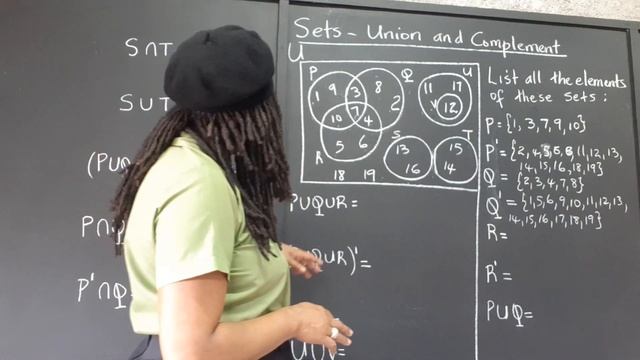 Sets - Union and Complement
S∩T
S∪T
(P∪
P∩Q
P'∩Q
U
P
Q
U
1
9
3
8
2
7
10
4
5
6
R
18
19
11
17
V
12
S
13
16
T
15
14
P∪Q∪R=
∪R)'=
List all the elements
of these sets:
P={1, 3, 7, 9, 10}
14, 15, 16, 18, 19}
Q={2, 3, 4, 7, 8}
Q'={1, 5, 6, 9, 10, 11, 12, 13,
14, 15, 16, 17, 18, 19}
R=
R'=
P∪Q=